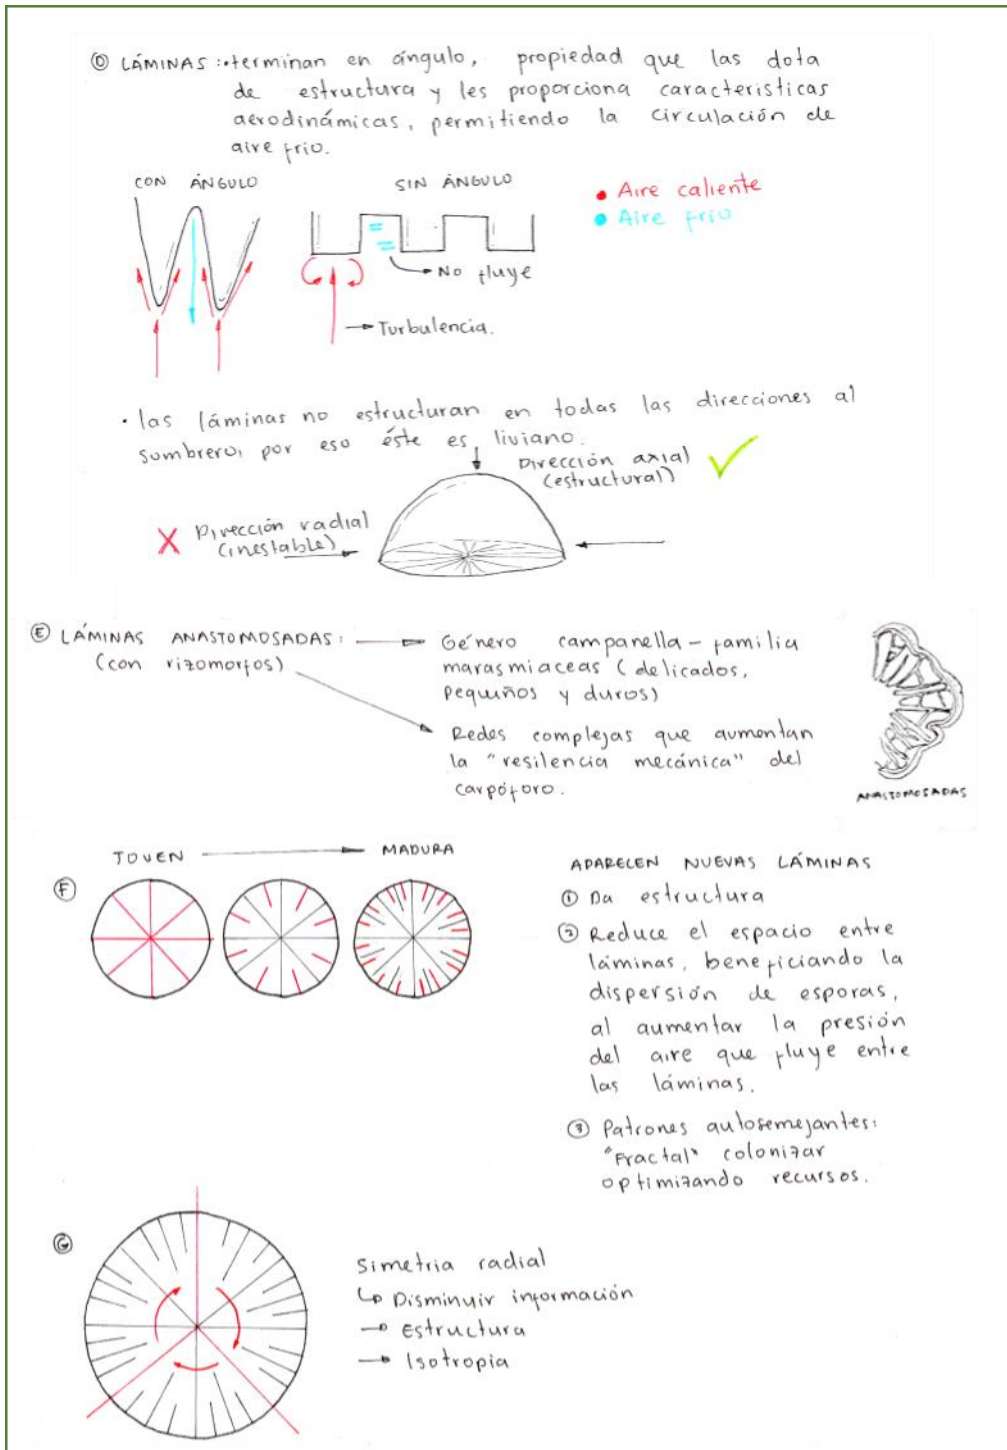 Ⓓ LÁMINAS: • terminan en ángulo, propiedad que las dota
de estructura y les proporciona caracteristicas
aerodinámicas, permitiendo la circulación de
aire frio.
CON ÁNGULO
SIN ÁNGULO
• Aire caliente
• Aire frio
No fluye
Turbulencia.
• las láminas no estructuran en todas las direcciones al
sombrero, por eso éste es liviano.
Dirección axial
(estructural)
Dirección radial
(inestable)
Ⓔ LÁMINAS ANASTOMOSADAS:
(con rizomorfos)
Género campanella - familia
marasmiaceas (delicados,
pequeños y duros)
Redes complejas que aumentan
la "resilencia mecánica" del
carpóforo.
ANASTOMOSADAS
JOVEN
MADURA
Ⓕ
APARECEN NUEVAS LÁMINAS
① Da estructura
② Reduce el espacio entre
láminas, beneficiando la
dispersión de esporas,
al aumentar la presión
del aire que fluye entre
las láminas.
③ Patrones autosemejantes:
"Fractal" colonizar
optimizando recursos.
Ⓖ
Simetria radial
↳ Disminuir información
→ Estructura
→ Isotropia